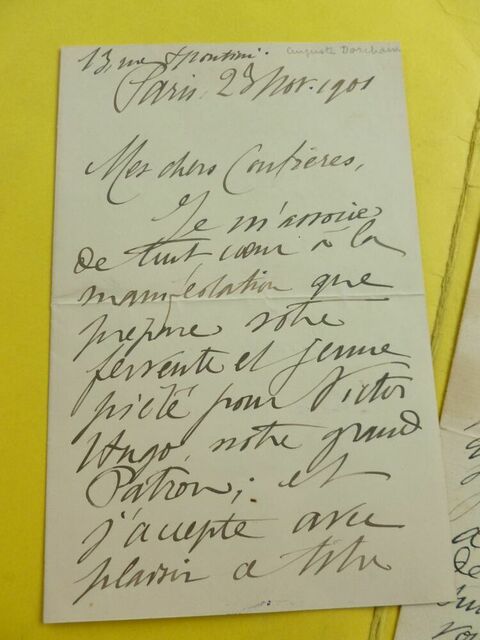 13, rue Spontini.
Auguste Dorchain
Paris, 23 Nov. 1901
Mes chers Confrères,
Je m'associe
de tout cœur à la
manifestation que
prépare votre
fervente et jeune
piété pour Victor
Hugo, notre grand
Patron; et
j'accepte avec
plaisir le titre